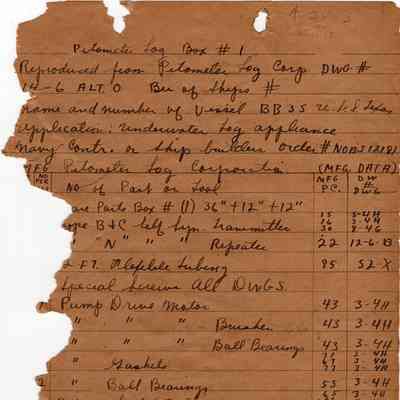 Pitometer Log Box # 1
Reproduced from Pitometer Log Corp DWG #
14-6 ALT. 0 Bu of Ships #
name and number of Vessel BB35 U.S.S Texas
application: underwater Log appliance
navy Contr. or Ship builders order # NOBS 12181
MFG Pitometer Log Corporation (MFG. DATA)
NO of Part or Tool MFG PC. DW # DWG
Parts Box # (1) 36" + 12" + 12" 15 3-4H
B & C Self Syn. Transmitter 30 8-4G
" "N" " Repeater 22 12-6-B
FT. Flexible Tubing 85 52-X
Special Screws All DWGS
Pump Drive Motor 43 3-4H
" " " Brushes 43 3-4H
" " " Ball Bearings 43 3-4H
" Gaskets 67 3-4H
77 3-4H
" Ball Bearings 53 3-4H